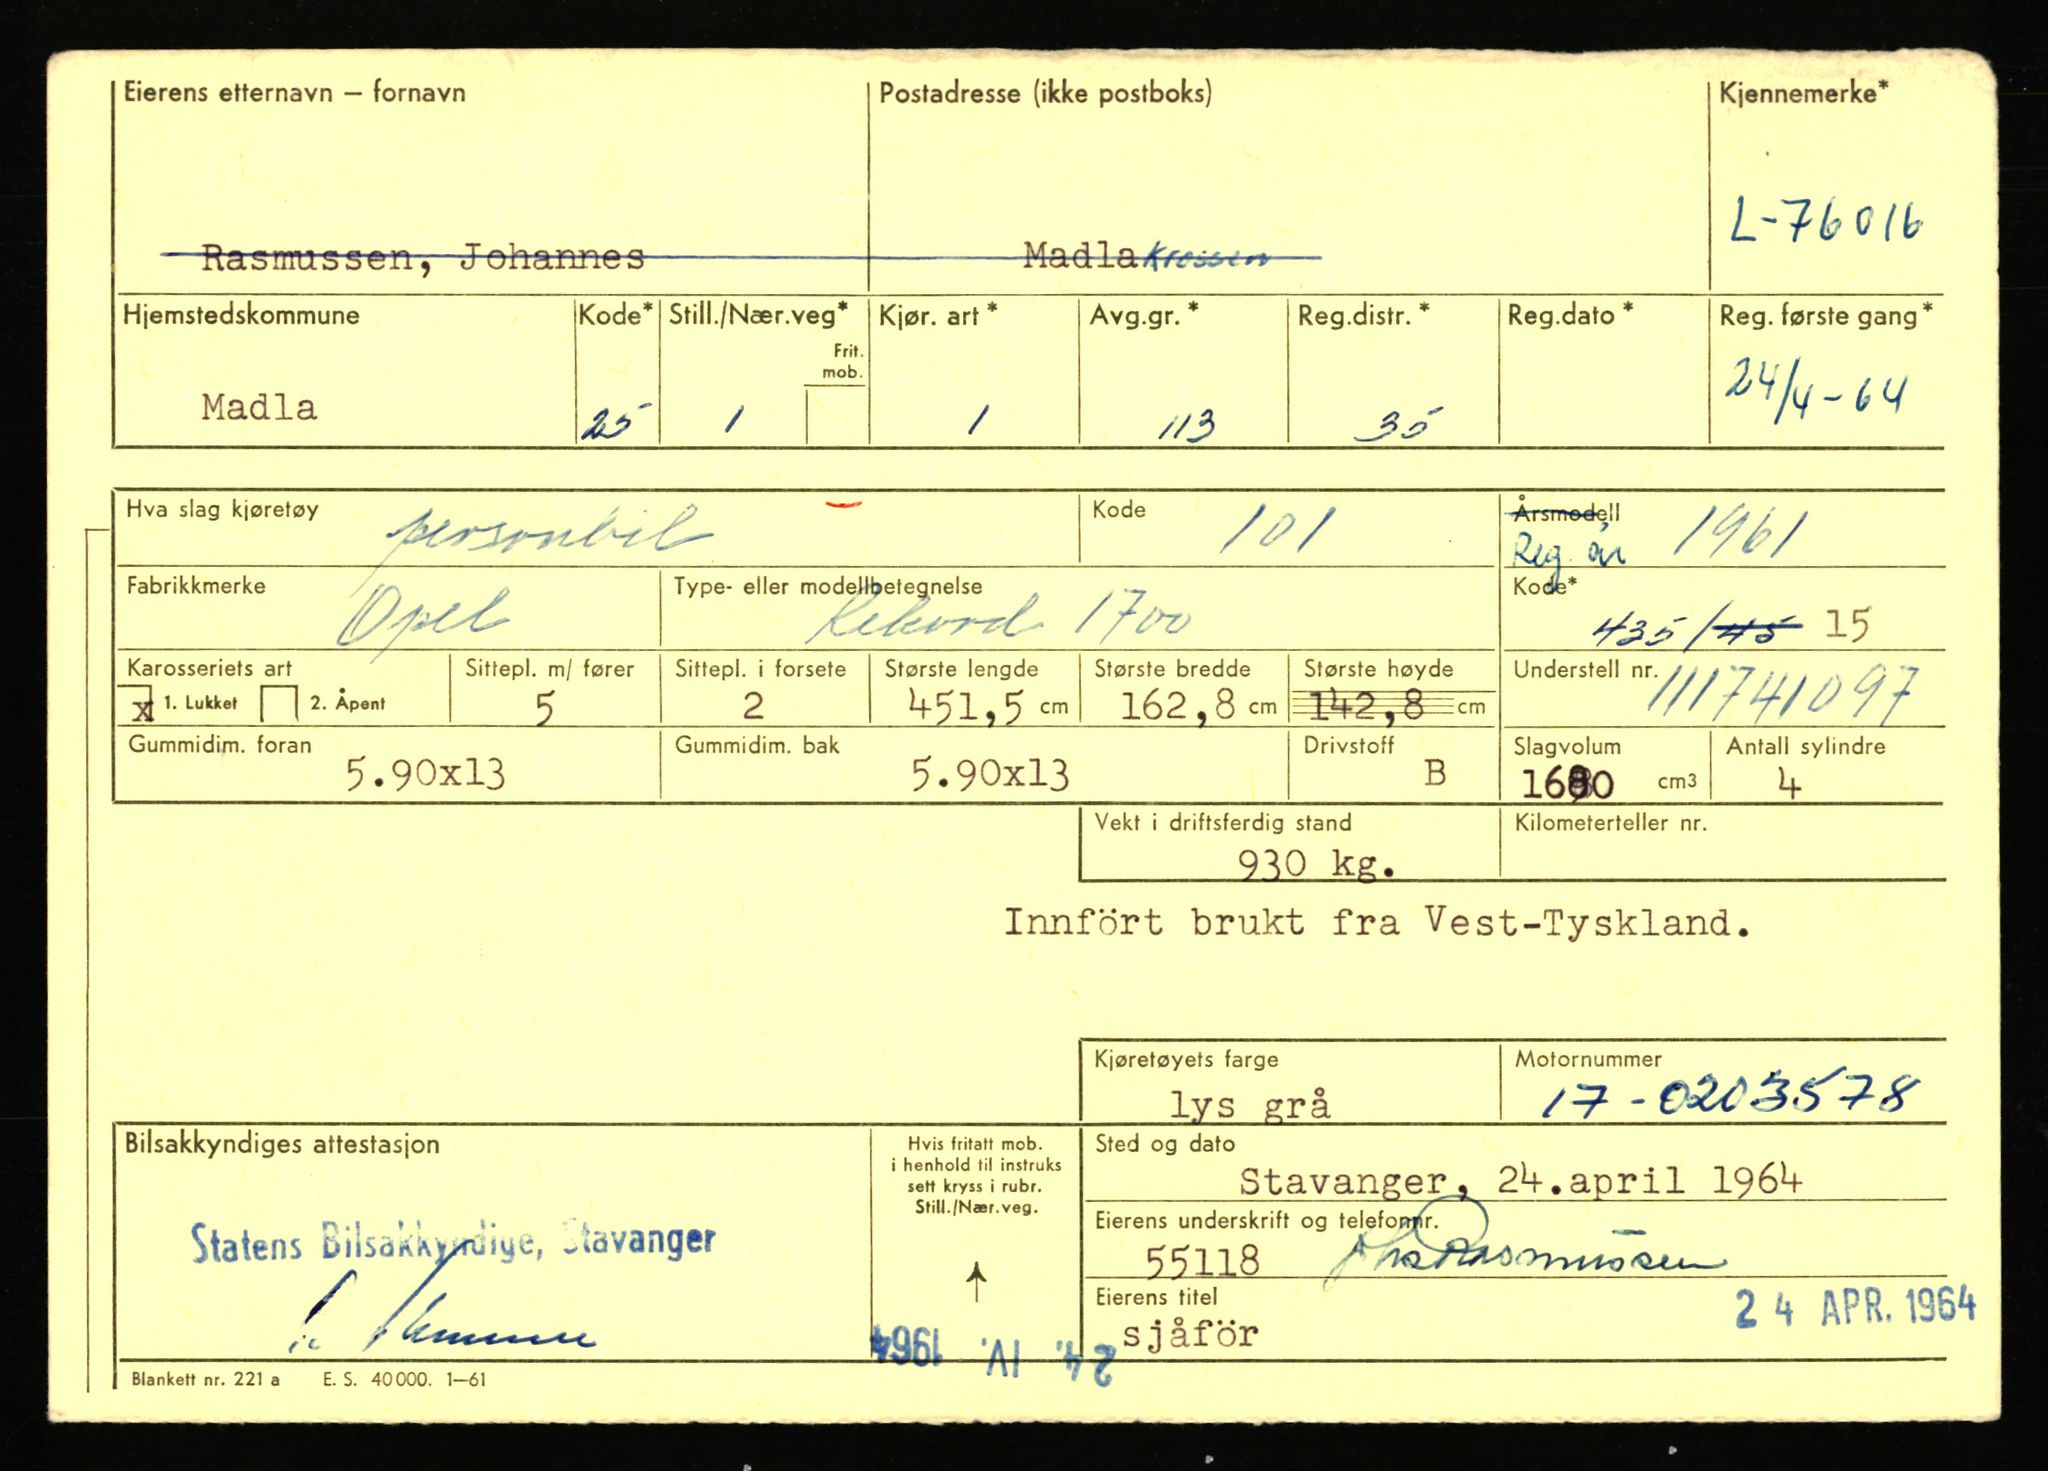 Eierens etternavn – fornavn Postadresse (ikke postboks) Kjennemerke*
L-76016
Rasmussen, Johannes Madlakrossen
Hjemstedskommune Kode* Still./Nær.veg* Kjør. art* Avg.gr.* Reg.distr.* Reg.dato* Reg. første gang*
Frit. mob.
Madla 25 1 1 113 35 24/4-64
Hva slag kjøretøy personbil Kode 101 Årsmodell 1961
Reg. år
Fabrikkmerke Opel Type- eller modellbetegnelse Rekord 1700 Kode*
435/45 15
Karosseriets art Sittepl. m/ fører Sittepl. i forsete Største lengde Største bredde Største høyde Understell nr. 111741097
x 1. Lukket 2. Åpent 5 2 451,5 cm 162,8 cm 142,8 cm
Gummidim. foran Gummidim. bak Drivstoff Slagvolum Antall sylindre
5.90x13 5.90x13 B 1680 cm3 4
Vekt i driftsferdig stand Kilometerteller nr.
930 kg.
Innfört brukt fra Vest-Tyskland.
Kjøretøyets farge Motornummer
lys grå 17-0203578
Bilsakkyndiges attestasjon Hvis fritatt mob. Sted og dato
i henhold til instruks
sett kryss i rubr.
Still./Nær.veg.
Stavanger, 24.april 1964
Eierens underskrift og telefonnr.
Statens Bilsakkyndige, Stavanger
55118 Johs Rasmussen
Eierens titel
24 APR. 1964
sjåför
24. IV. 1964
Blankett nr. 221 a E. S. 40 000. 1–61